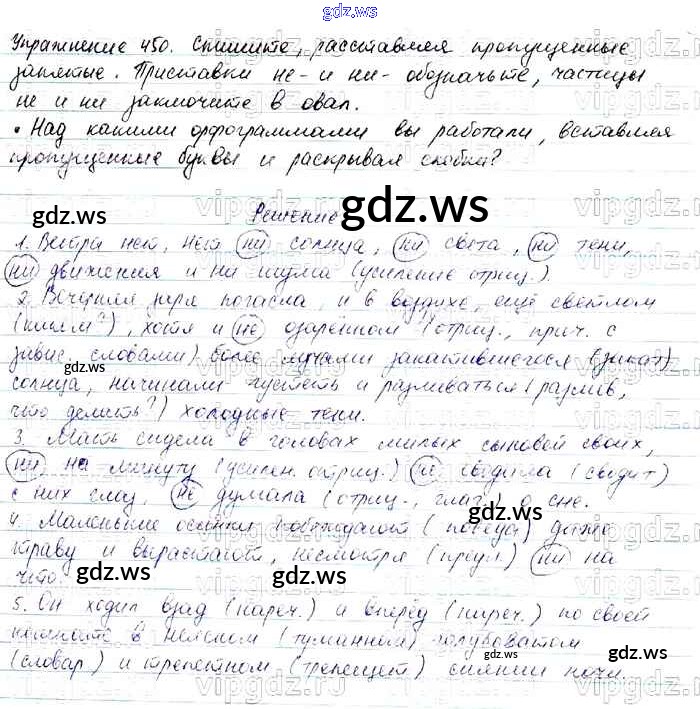 gdz.ws
Упражнение 450. Спишите, расставляя пропущенные
запятые. Приставки не- и ни- обозначьте, частицы
не и ни заключите в овал.
• Над какими орфограммами вы работали, вставляя
пропущенные буквы и раскрывая скобки?
gdz.ws gdz.ws
Решение
1. Ветра нет, нет ни солнца, ни света, ни тени,
ни движения и ни шума (усиление отриц.).
2. Вечерняя заря погасла, и в воздухе, ещё светлом
(каком?), хотя и не озарённом (отриц., прич. с
завис. словами) более лучами закатившегося (закат)
солнца, начинали густеть и разливаться (разлив,
что делать?) холодные тени.
3. Мать сидела в головах милых сыновей своих,
ни на минуту (усилен. отриц.) не сводила (сводит)
с них глаз, не думала (отриц., глаг.) о сне.
gdz.ws gdz.ws
4. Маленькие осинки побеждают (победа) даже
траву и вырастают, несмотря (предл.) ни на
что.
gdz.ws gdz.ws
5. Он ходил взад (нареч.) и вперёд (нареч.) по своей
комнате в неясном (туманном) голубоватом
(словар) и трепетном (трепещет) сиянии ночи.
gdz.ws gdz.ws